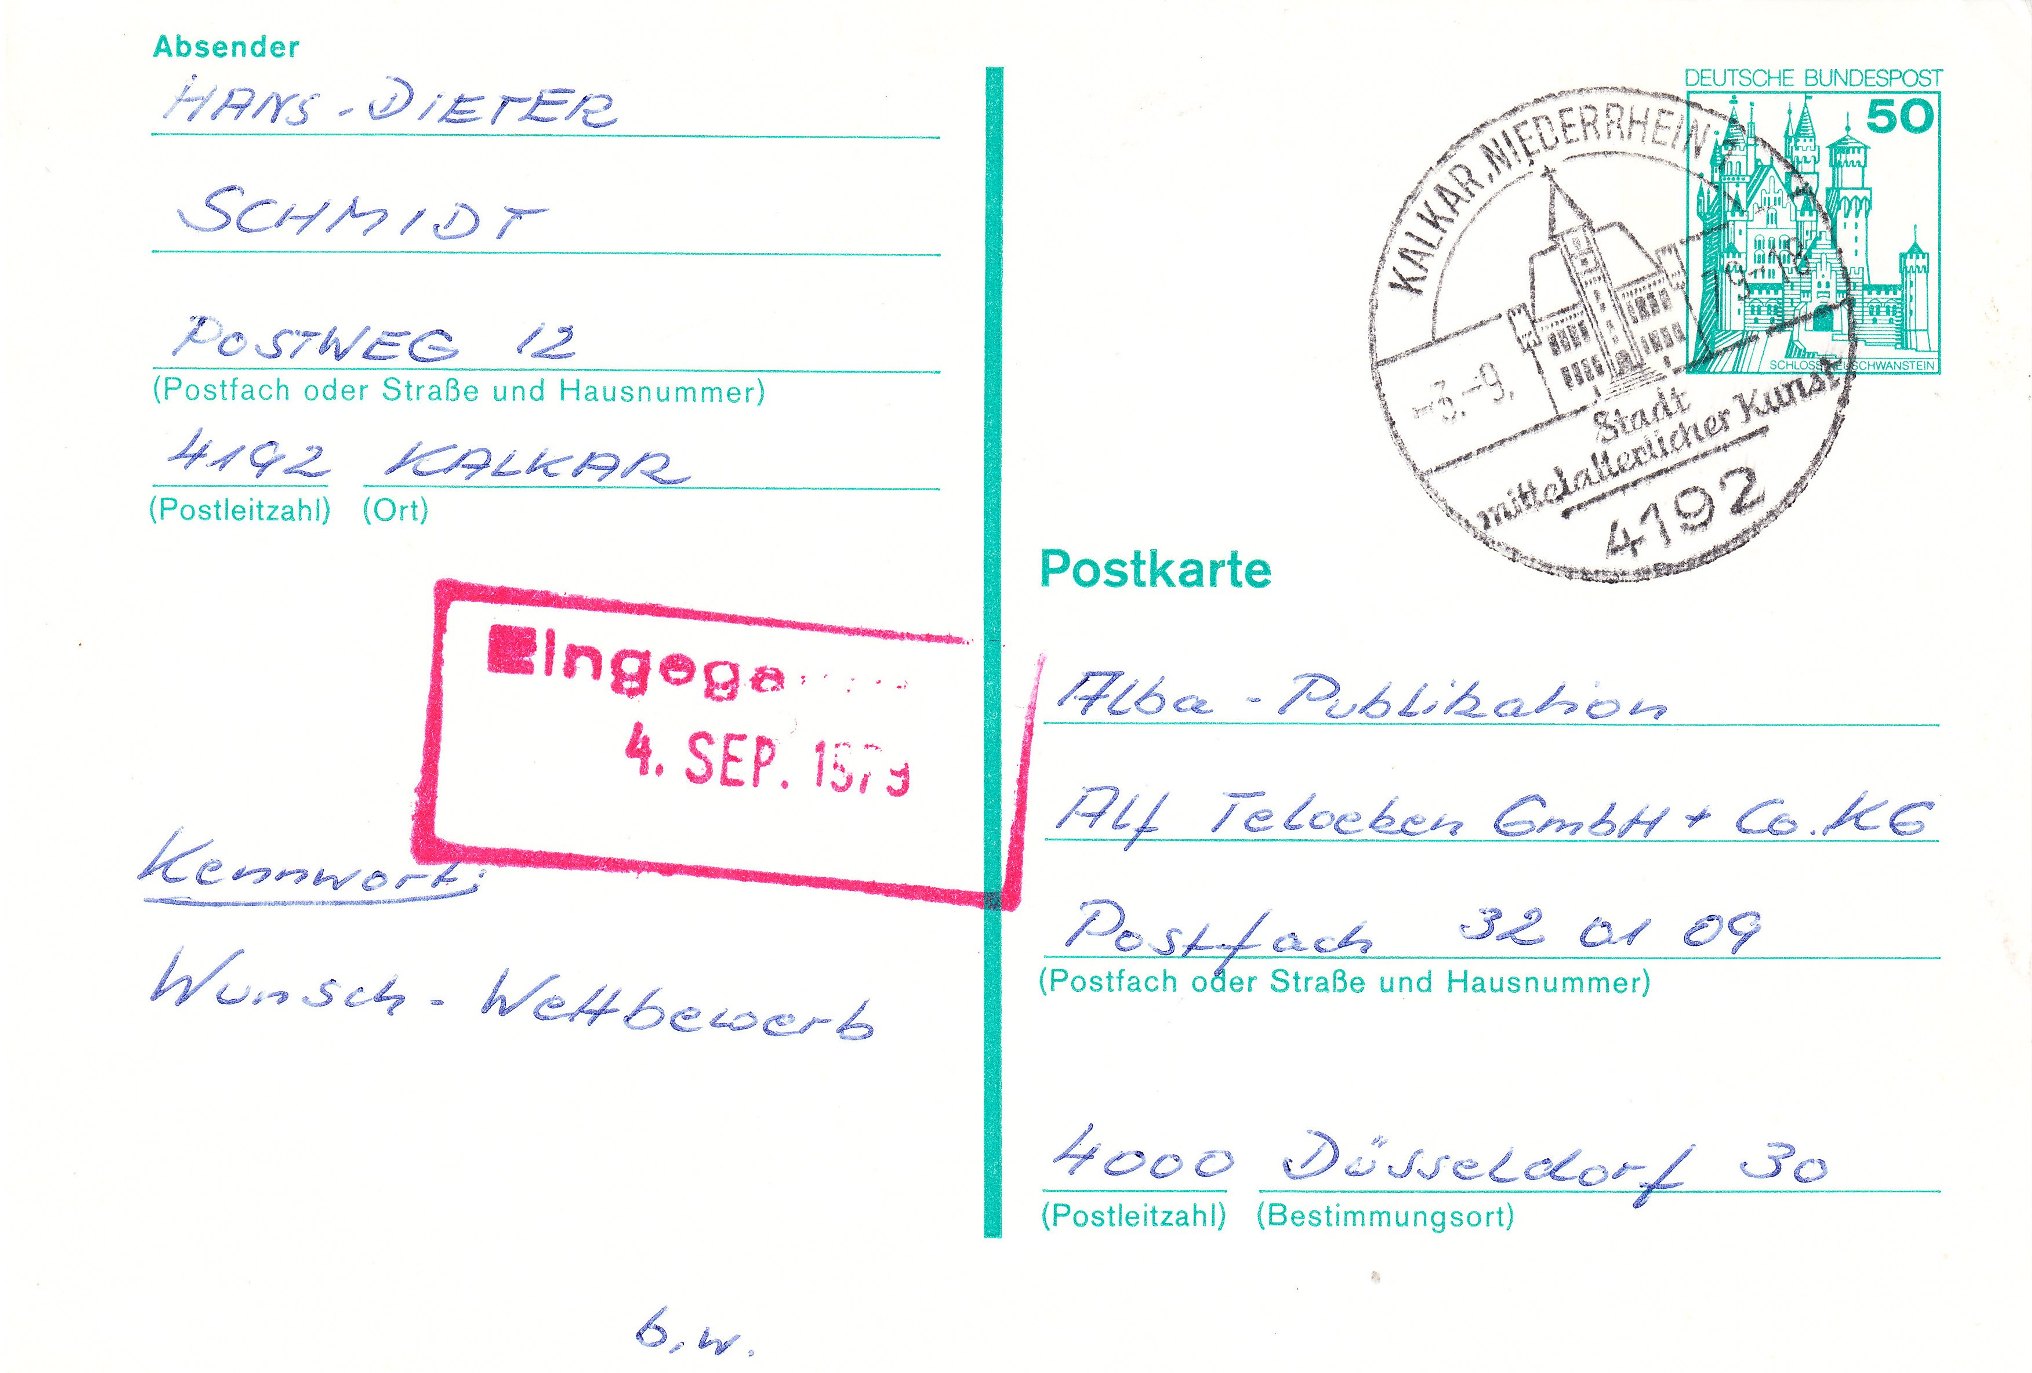 Absender
HANS-DIETER
SCHMIDT
POSTWEG 12
(Postfach oder Straße und Hausnummer)
4192 KALKAR
(Postleitzahl) (Ort)
Eingega
4. SEP. 1979
Kennwort:
Wunsch-Wettbewerb
b.w.
DEUTSCHE BUNDESPOST
50
SCHLOSS NEUSCHWANSTEIN
KALKAR, NIEDERRHEIN
-3.-9. 79-18
Stadt
mittelalterlicher Kunst
4192
Postkarte
Alba-Publikation
Alf Teloeken GmbH + Co. KG
Postfach 32 01 09
(Postfach oder Straße und Hausnummer)
4000 Düsseldorf 30
(Postleitzahl) (Bestimmungsort)